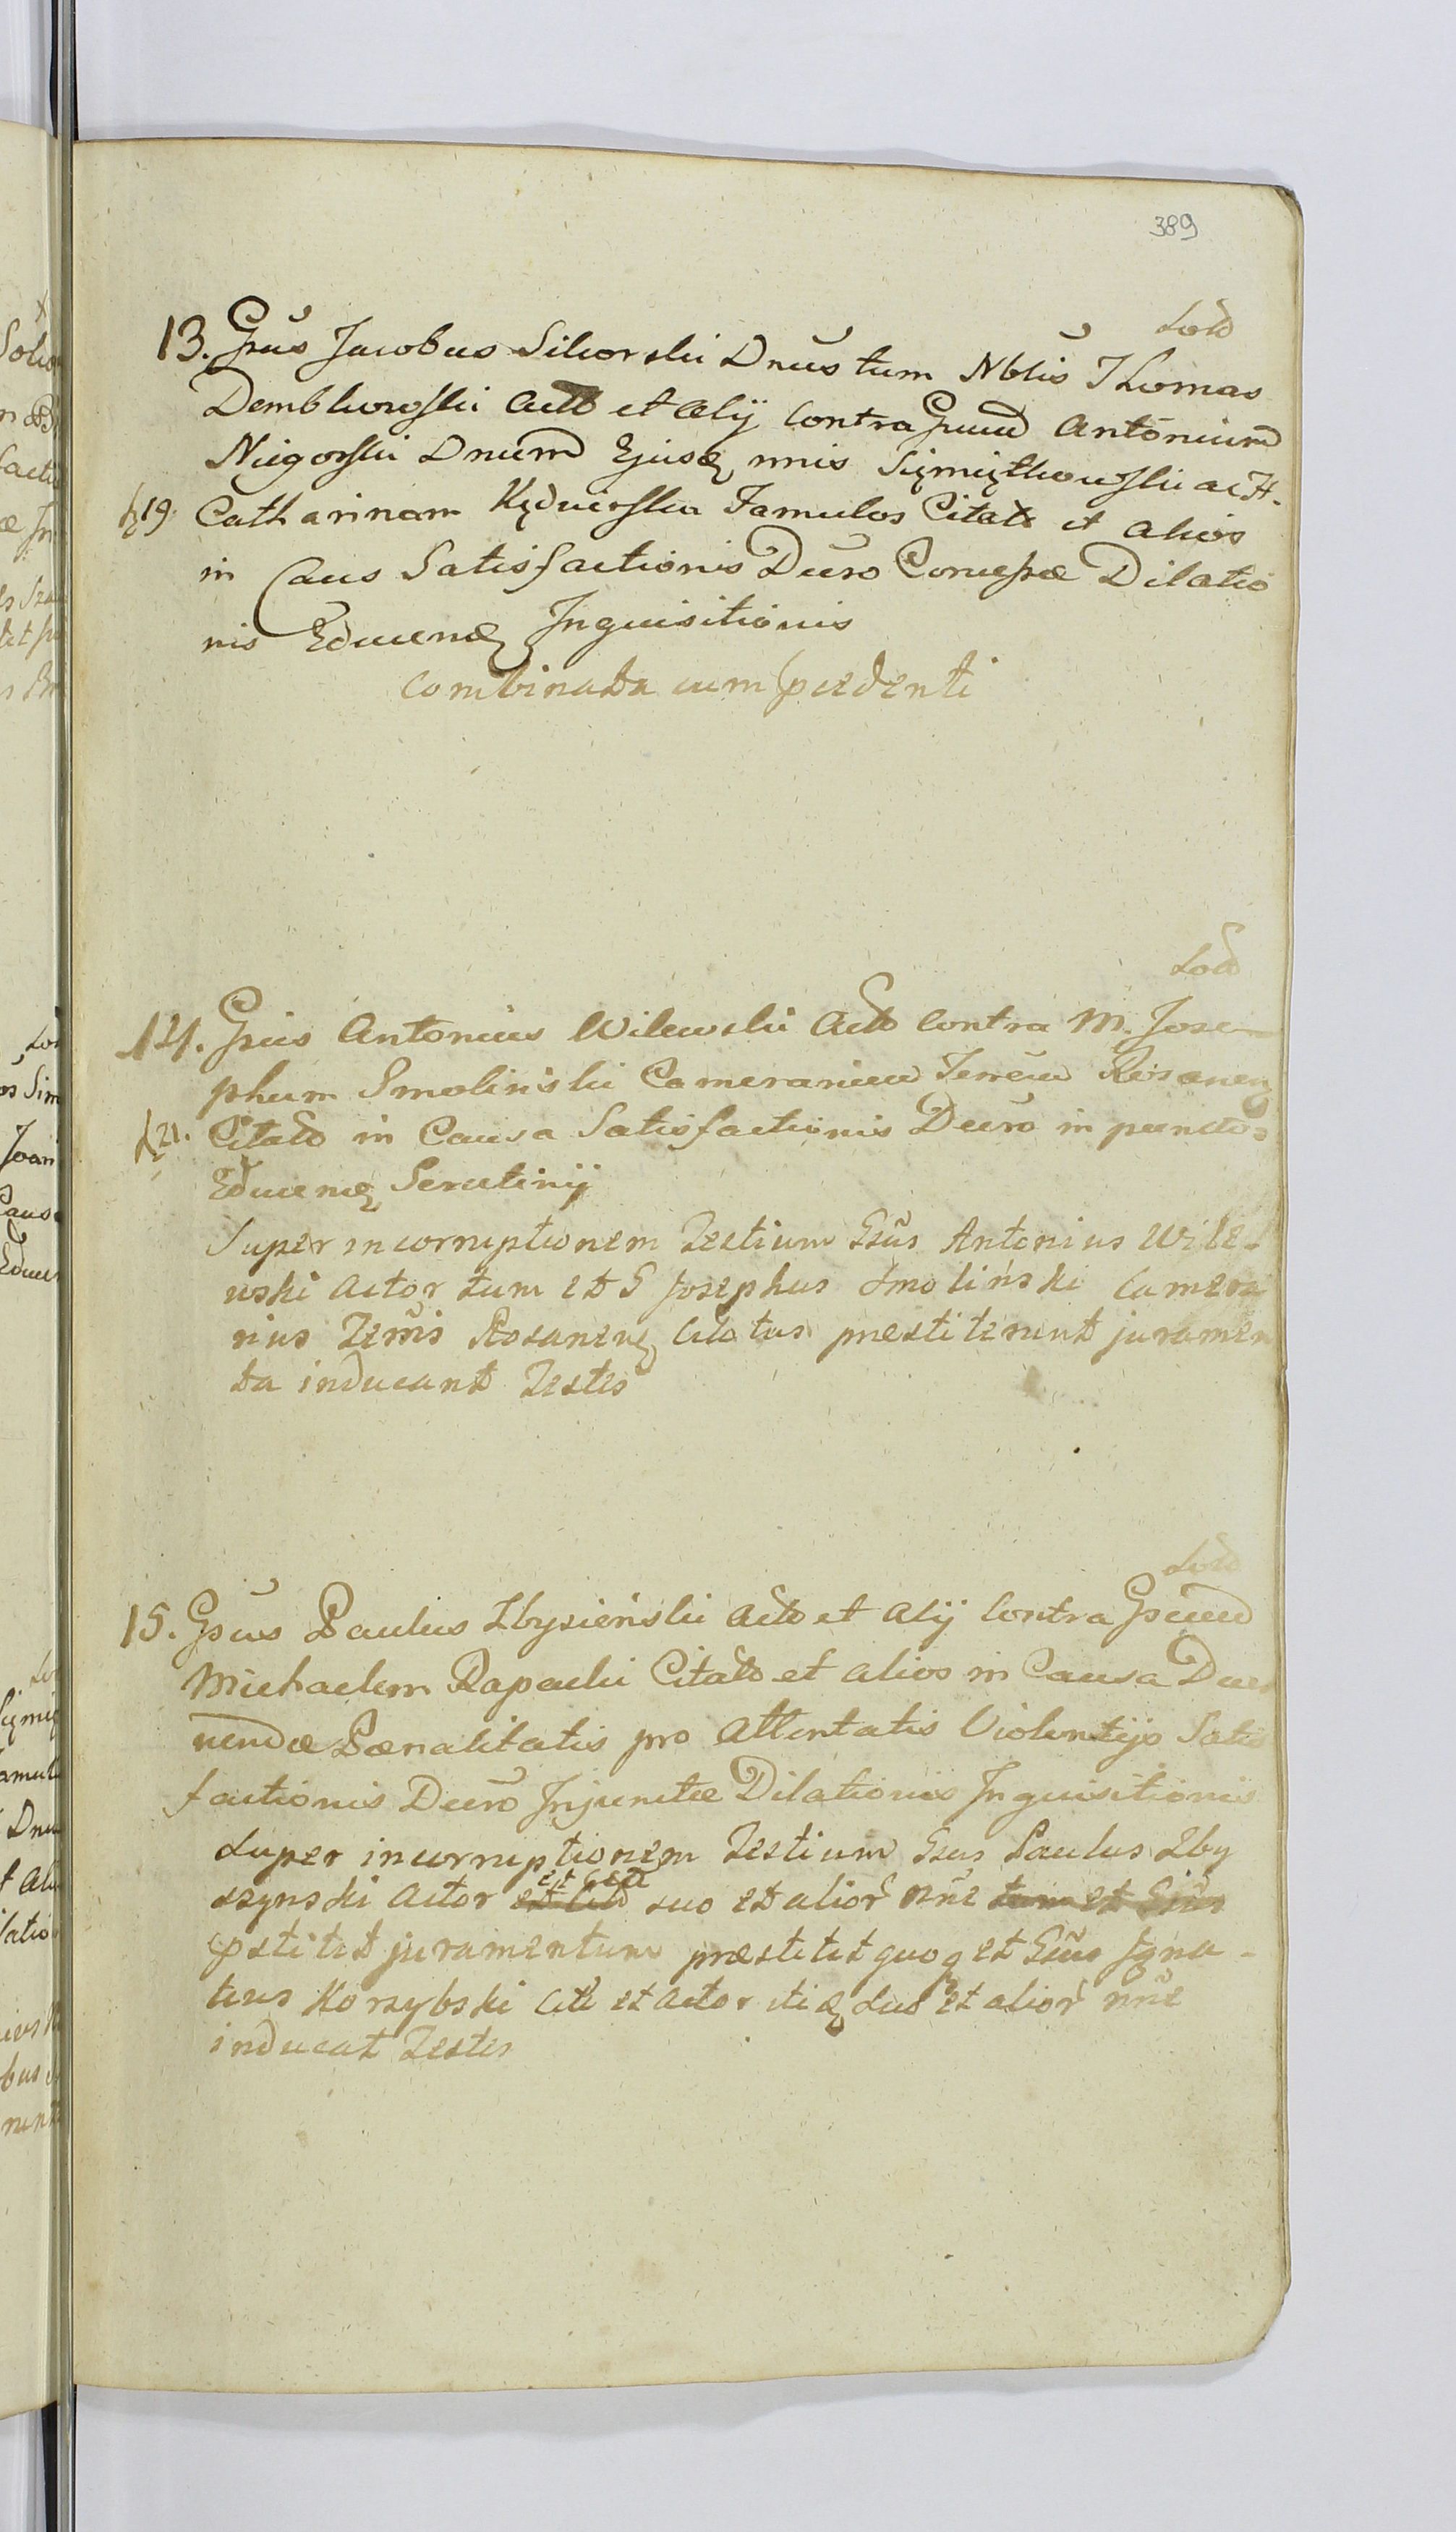 389
Lod
13. Gsus Jacobus Sikorski Dnus tum Nblis Thomas
Dembkowski Actt et Alij Contra Gsum Antonium
Niegorski Dnum Ejusq nnis Siemiętkowski ac H.
fz 19. Catharinam Kędzierska Famulos Citat et alios
in Caus Satisfactionis Decro Concessæ Dilatio
nis Educenæ Inquisitionis
Combinata cum pcedenti
Lod
14. Gsus Antonius Wilewski Act Contra M. Jose-
phum Smolinski Camerarium Terrem Rosanen
fz 21. Citat in Causa Satisfactionis Decro in puncto
Educenæ Scrutinij
Super incorruptionem Testium Gsus Antonius Wile-
wski Actor tum et G Josephus Smoliński Camera
rius Terris Rosanen Citatus præstiterunt juramen
ta inducant Testes
Lod
15. Gsus Paulus Zbysieński Act et Alij Contra Gsum
Michaelem Rapacki Citat et alios in Causa Decer
nendæ Pœnalitatis pro Attentatis Violentijs Satis
factionis Decro Injunctæ Dilationis Inquisitionis
Super incorruptionem Testium Gsus Paulus Zby
szynski Actor et Citt suo et alior nne
pstitit juramentum præstitit quoq et Gsus Igna-
tius Korzybski Citt et Actor itiq suo et alior nne
inducat Testes